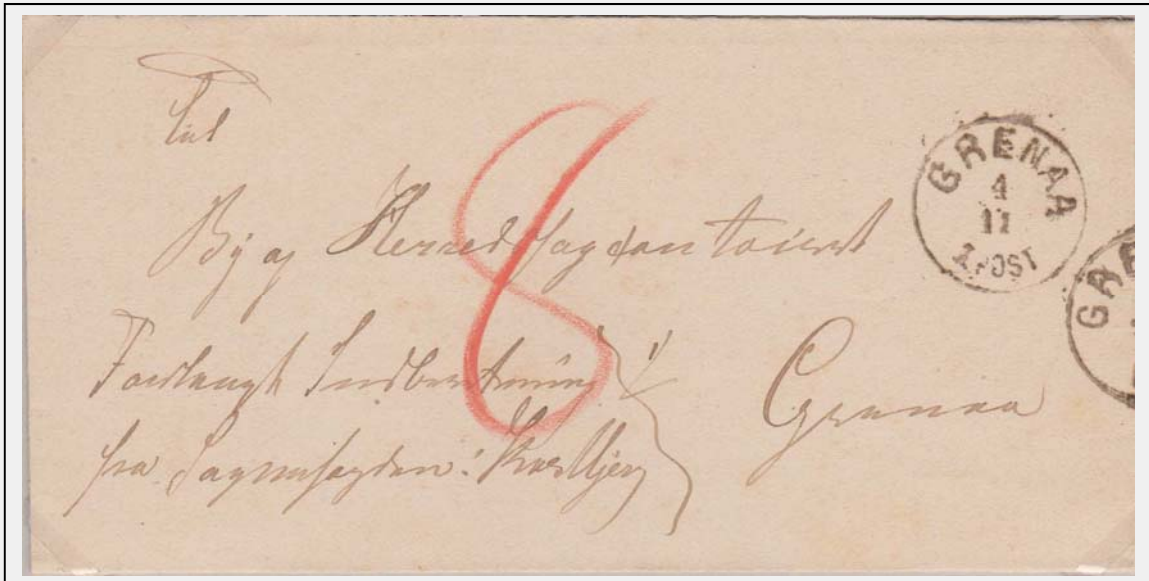 Til
By og Herredsfogdcontoiret
Forlangt Indberetning
fra Sognefogden:
Grenaa
8
GRENAA
4
11
1 POST
GRE